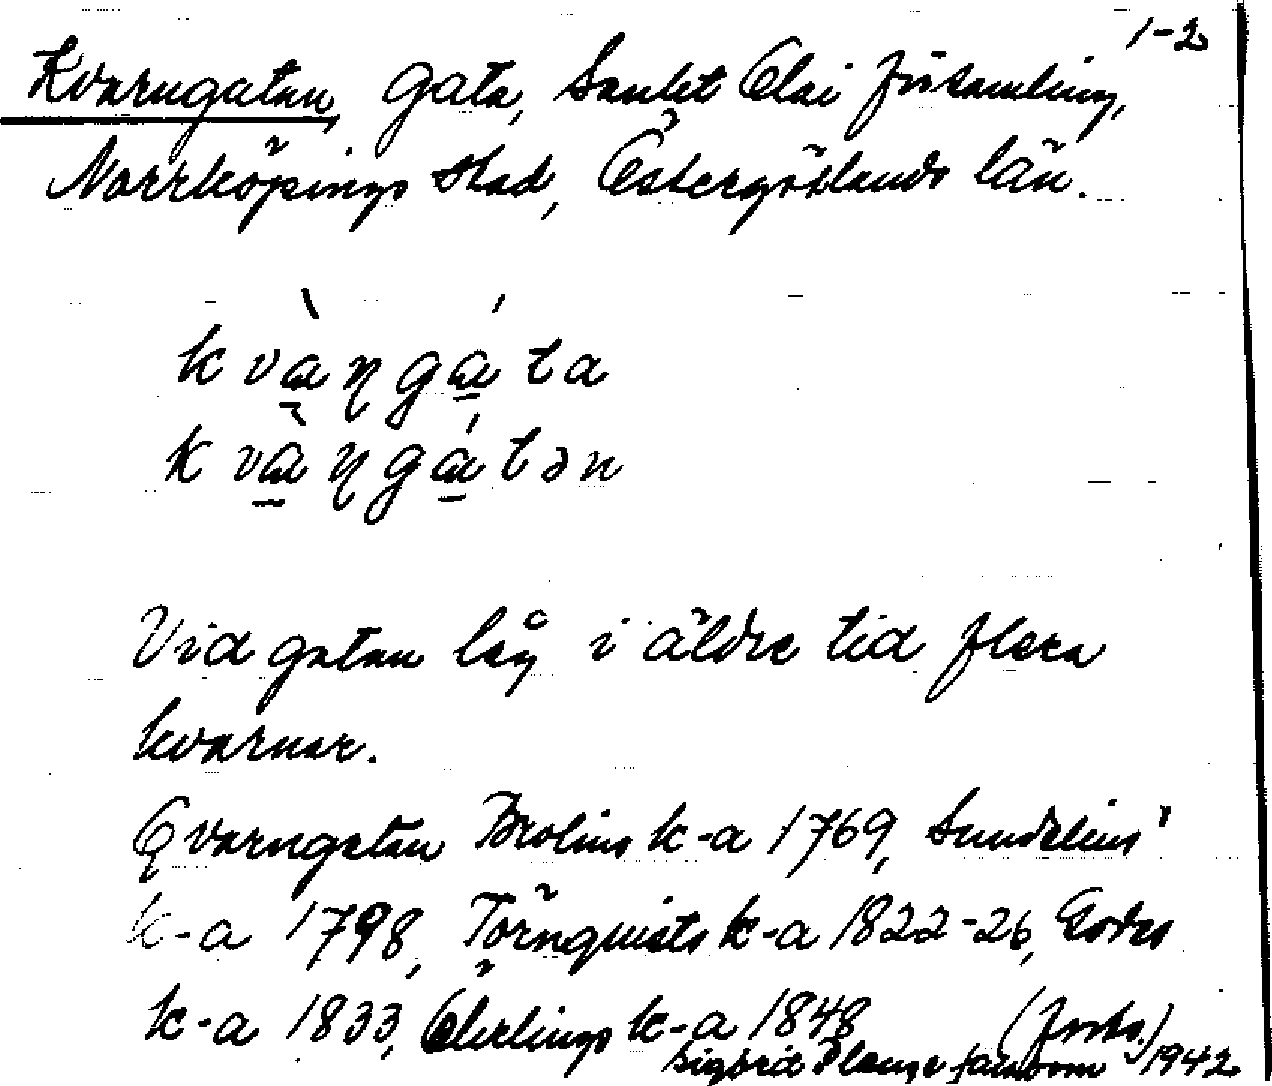 1-2
Kvarngatan, gata, Sankt Olai församling,
Norrköpings stad, Östergötlands län.
kvàŋgáta
kvàŋgátən
Vid gatan låg i äldre tid flera
kvarnar.
Qvarngatan Brolins k-a 1769, Sundelius'
k-a 1798, Törnquists k-a 1822-26,
k-a 1833, k-a 1848 (forts.)
Sigbrit Plænge Jacobson 1942